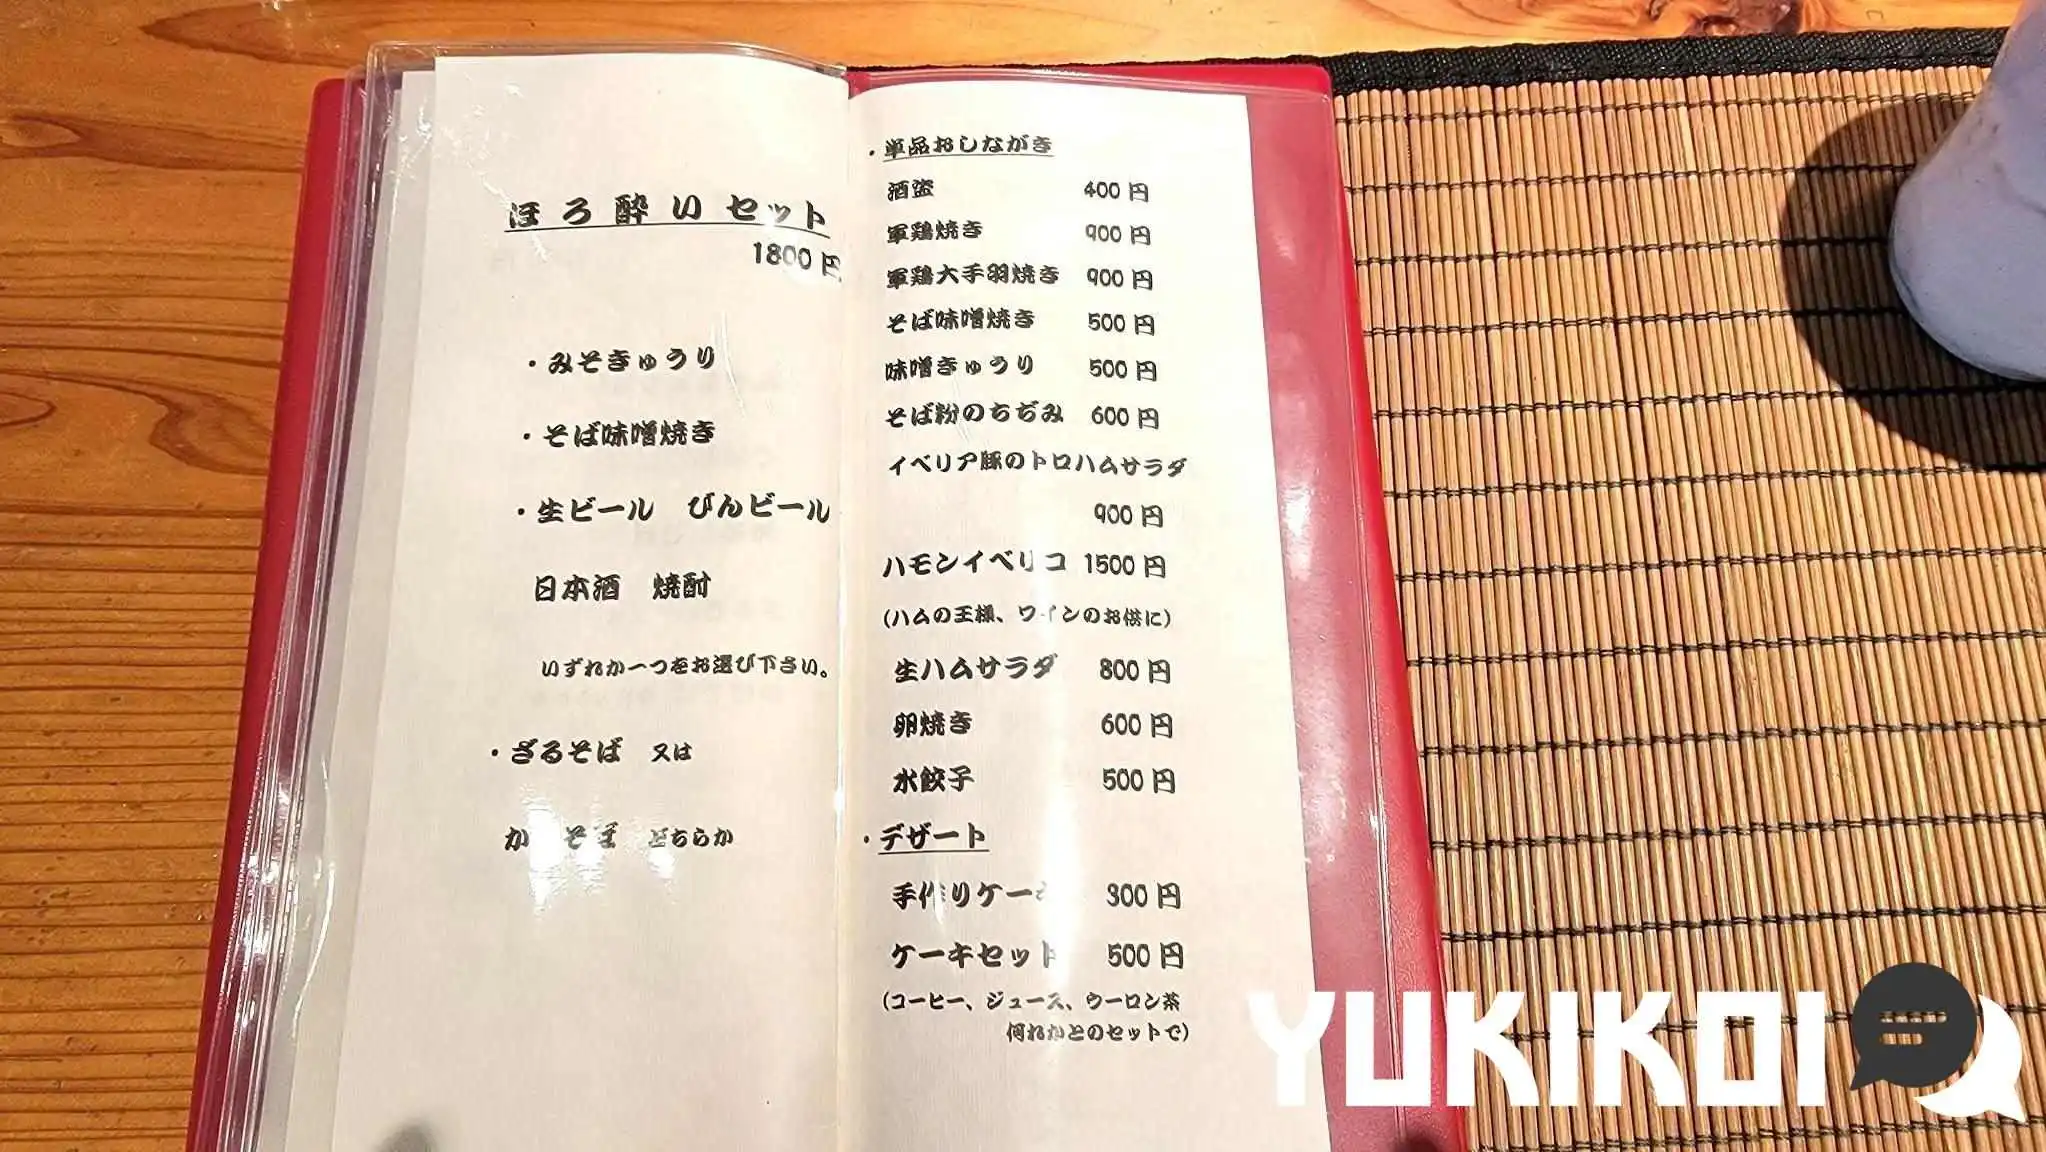 ほろ酔いセット
1800円
・みそきゅうり
・そば味噌焼き
・生ビール びんビール
日本酒 焼酎
いずれか一つをお選び下さい。
・ざるそば 又は
そば どちらか
・単品おしながき
酒盗 400円
軍鶏焼き 900円
軍鶏大手羽焼き 900円
そば味噌焼き 500円
味噌きゅうり 500円
そば粉のちぢみ 600円
イベリア豚のトロハムサラダ
900円
ハモンイベリコ 1500円
(ハムの王様、ワインのお供に)
生ハムサラダ 800円
卵焼き 600円
水餃子 500円
・デザート
手作りケーキ 300円
ケーキセット 500円
(コーヒー、ジュース、ウーロン茶
何れかとのセットで)
YUKIKOI